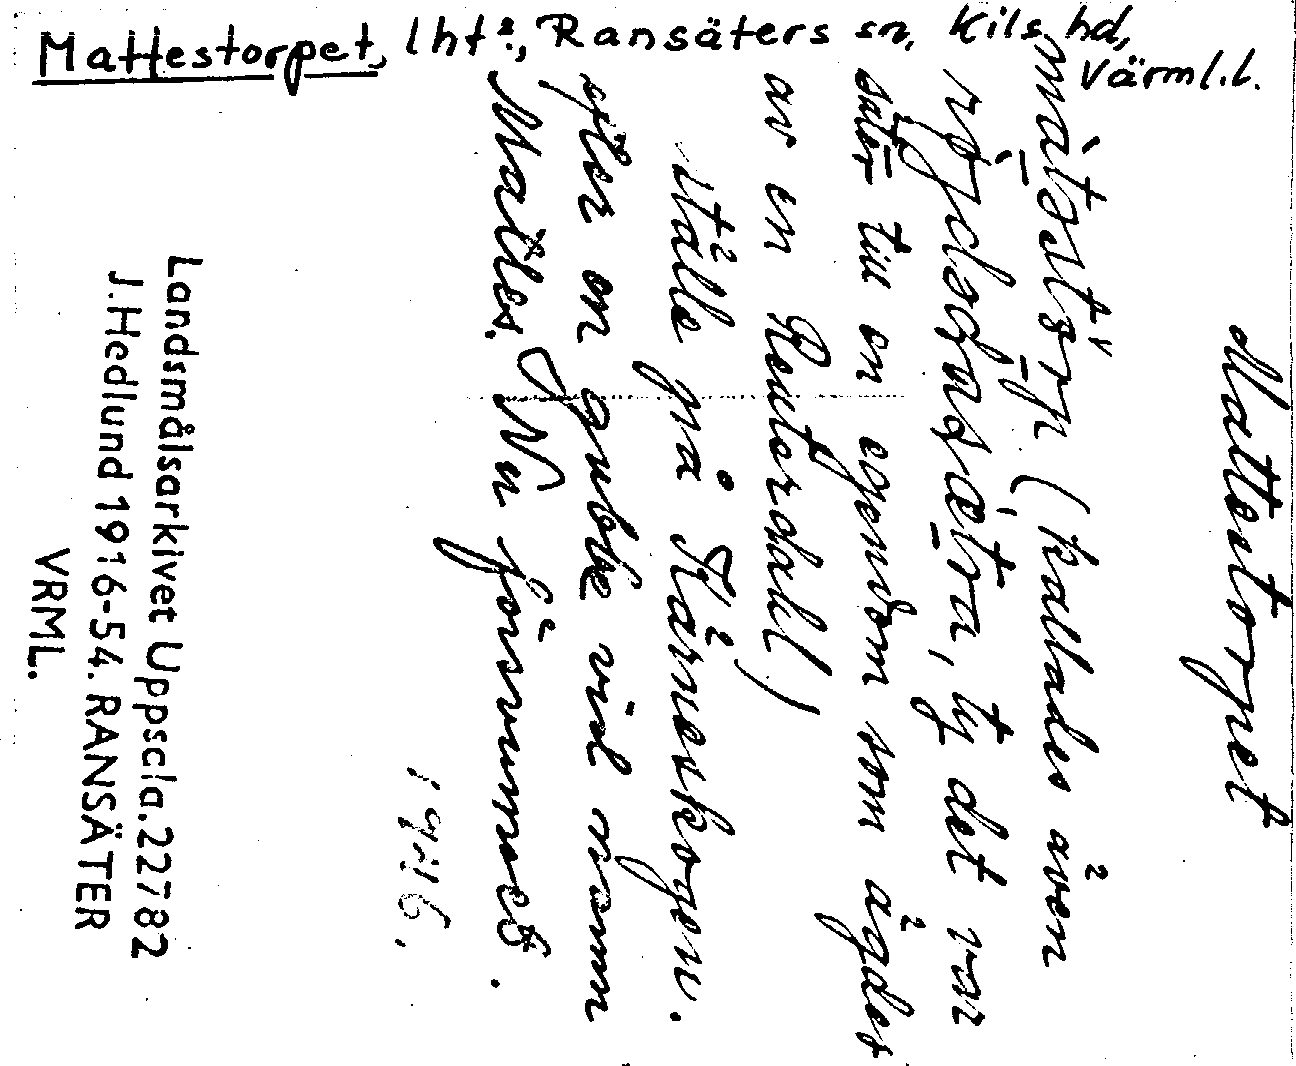 Mattestorpet, lht?, Ransäters sn, Kils hd,
Värml.l.
Mattestorpet
(kallades även
ty det var
säter till en egendom som ägdes
av en Reuterdahl)
ställe på Kärneskogen.
efter en gubbe vid namn
Mattes. Nu försvunnet.
1916.
Landsmålsarkivet Uppsala. 22782
J. Hedlund 1916-54. RANSÄTER
VRML.